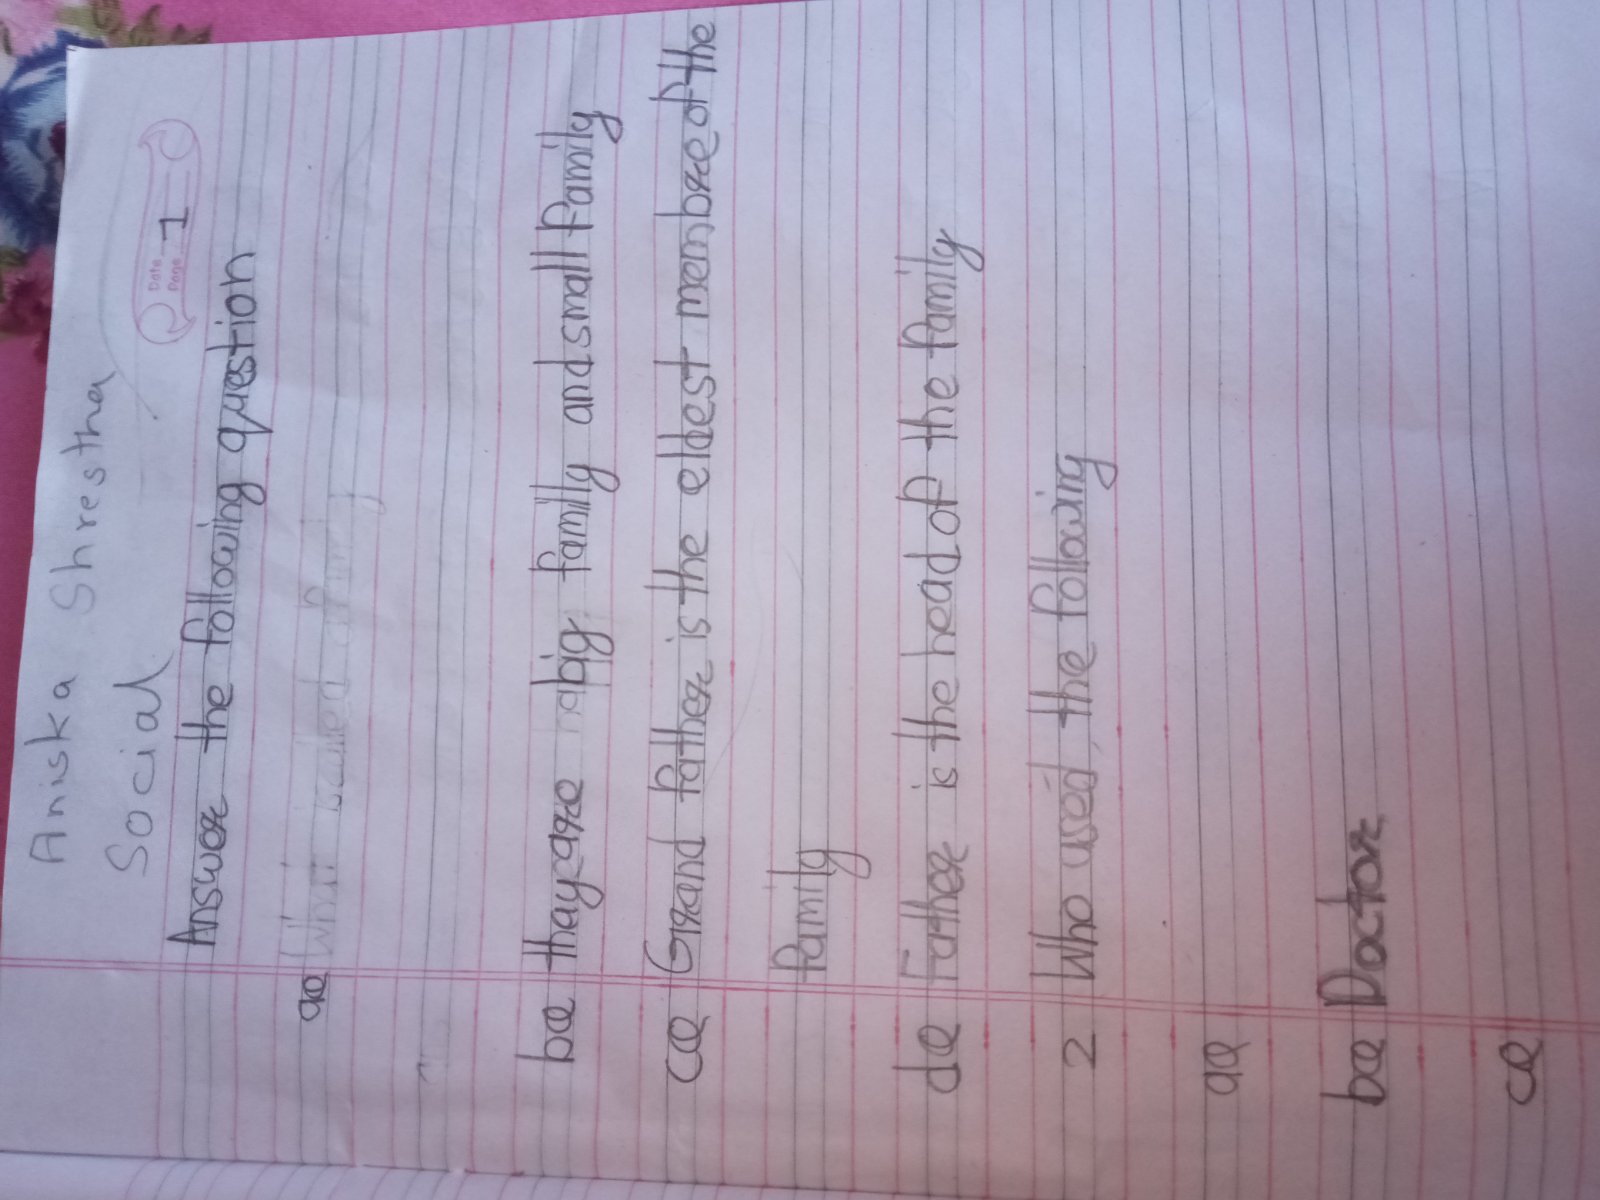 Aniska Shrestha
Social
Date
Page 1
Answer the following question
aQ What is called a family
bQ thayare big family and small family
cQ Grand father is the eldest membre of the
family
dQ Father is the head of the family
2 Who used the following
aQ
bQ Doctor
cQ